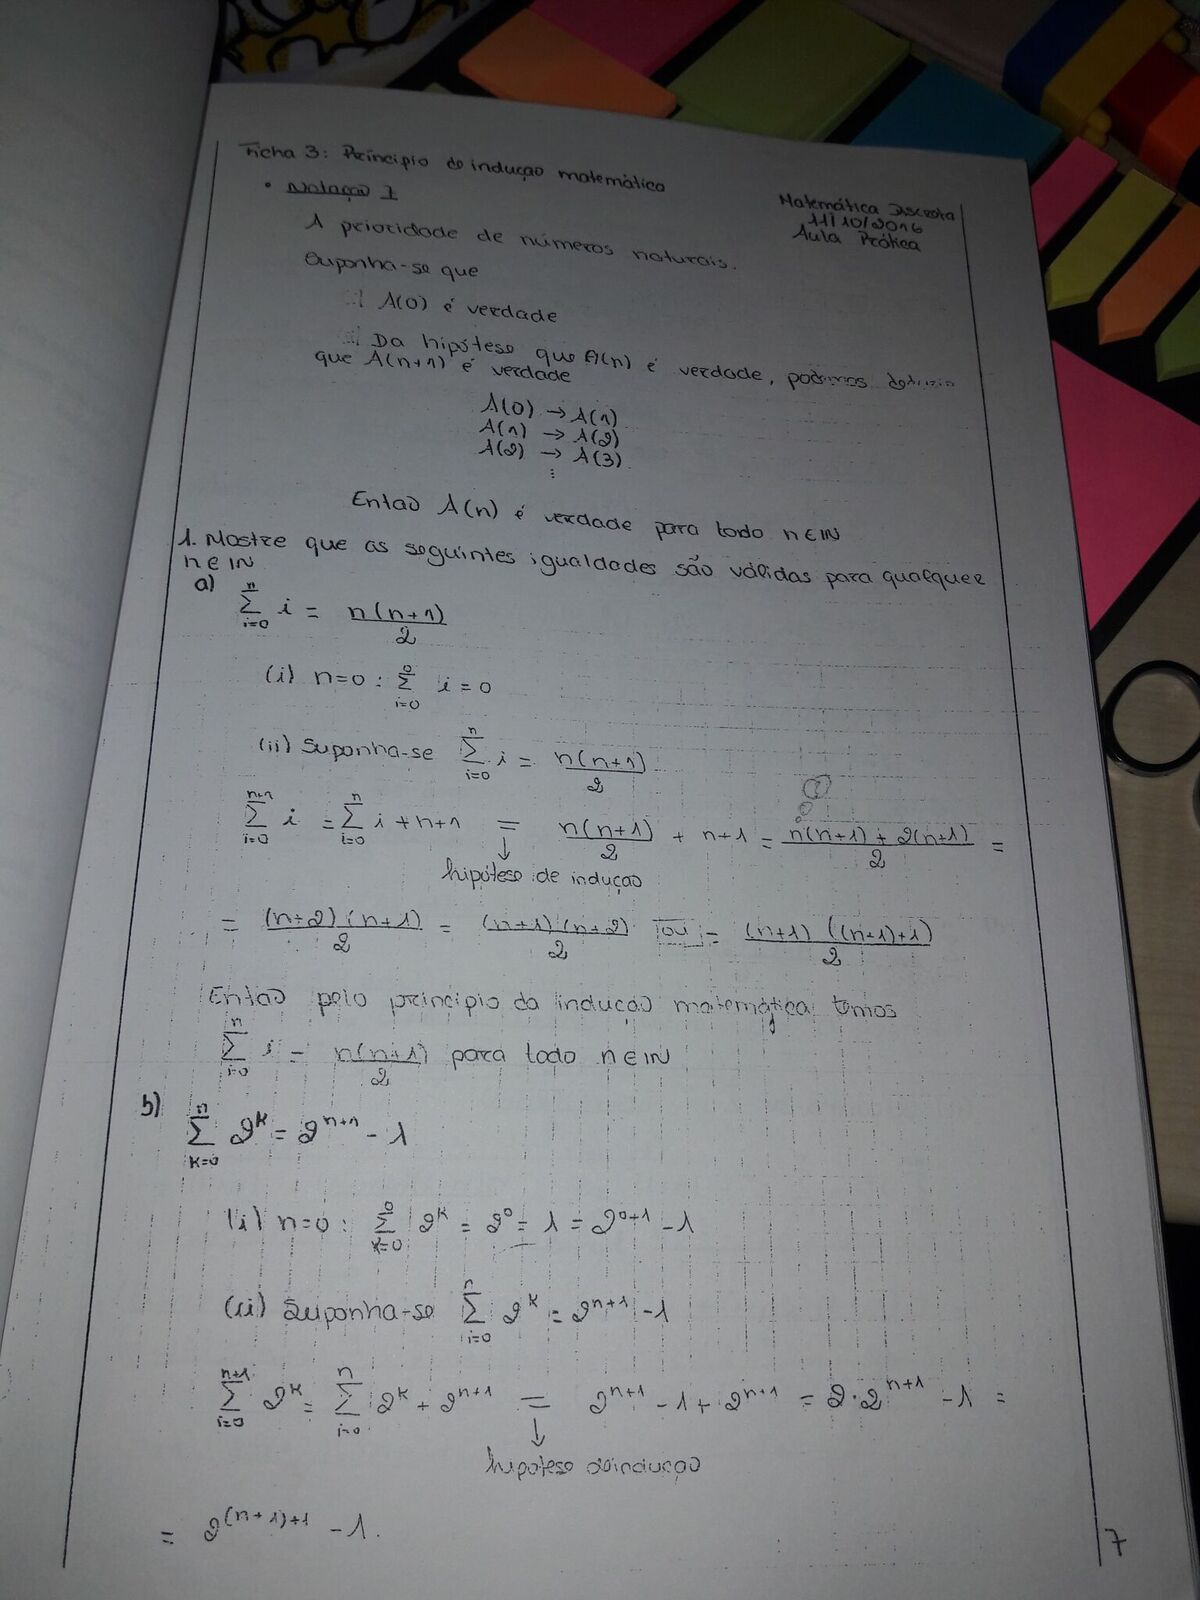 Ficha 3: Princípio de indução matemática
Matemática Discreta
11/10/2016
Aula Prática
• Notação 1
A prioridade de números naturais.
Suponha-se que
A(0) é verdade
Da hipótese que A(n) é verdade, podemos deduzir
que A(n+1) é verdade
A(0) → A(1)
A(1) → A(2)
A(2) → A(3)
⋮
Então A(n) é verdade para todo n∈IN
1. Mostre que as seguintes igualdades são válidas para qualquer
n∈IN
a) ∑_{i=0}^{n} i = n(n+1)/2
(i) n=0 : ∑_{i=0}^{0} i = 0
(ii) Suponha-se ∑_{i=0}^{n} i = n(n+1)/2
∑_{i=0}^{n+1} i = ∑_{i=0}^{n} i + n+1 = n(n+1)/2 + n+1 = (n(n+1) + 2(n+1))/2 =
↓
hipótese de indução
= (n+2)(n+1)/2 = (n+1)(n+2)/2 ou = (n+1)((n+1)+1)/2
Então pelo princípio da indução matemática temos
∑_{i=0}^{n} i = n(n+1)/2 para todo n∈IN
b) ∑_{k=0}^{n} 2^k = 2^{n+1} - 1
(i) n=0 : ∑_{k=0}^{0} 2^k = 2^0 = 1 = 2^{0+1} - 1
(ii) Suponha-se ∑_{i=0}^{n} 2^k = 2^{n+1} - 1
∑_{i=0}^{n+1} 2^k = ∑_{i=0}^{n} 2^k + 2^{n+1} = 2^{n+1} - 1 + 2^{n+1} = 2·2^{n+1} - 1 =
↓
hipótese de indução
= 2^{(n+1)+1} - 1.
7